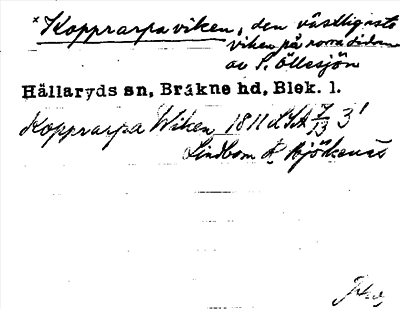 *Kopprarpa viken, den västligaste
viken på norra sidan
av S. Öllesjön
Hällaryds sn, Bräkne hd, Blek. l.
Kopprarpa Wiken 1811 LSA 7/13 3'
Lindbom f. Björkenäs